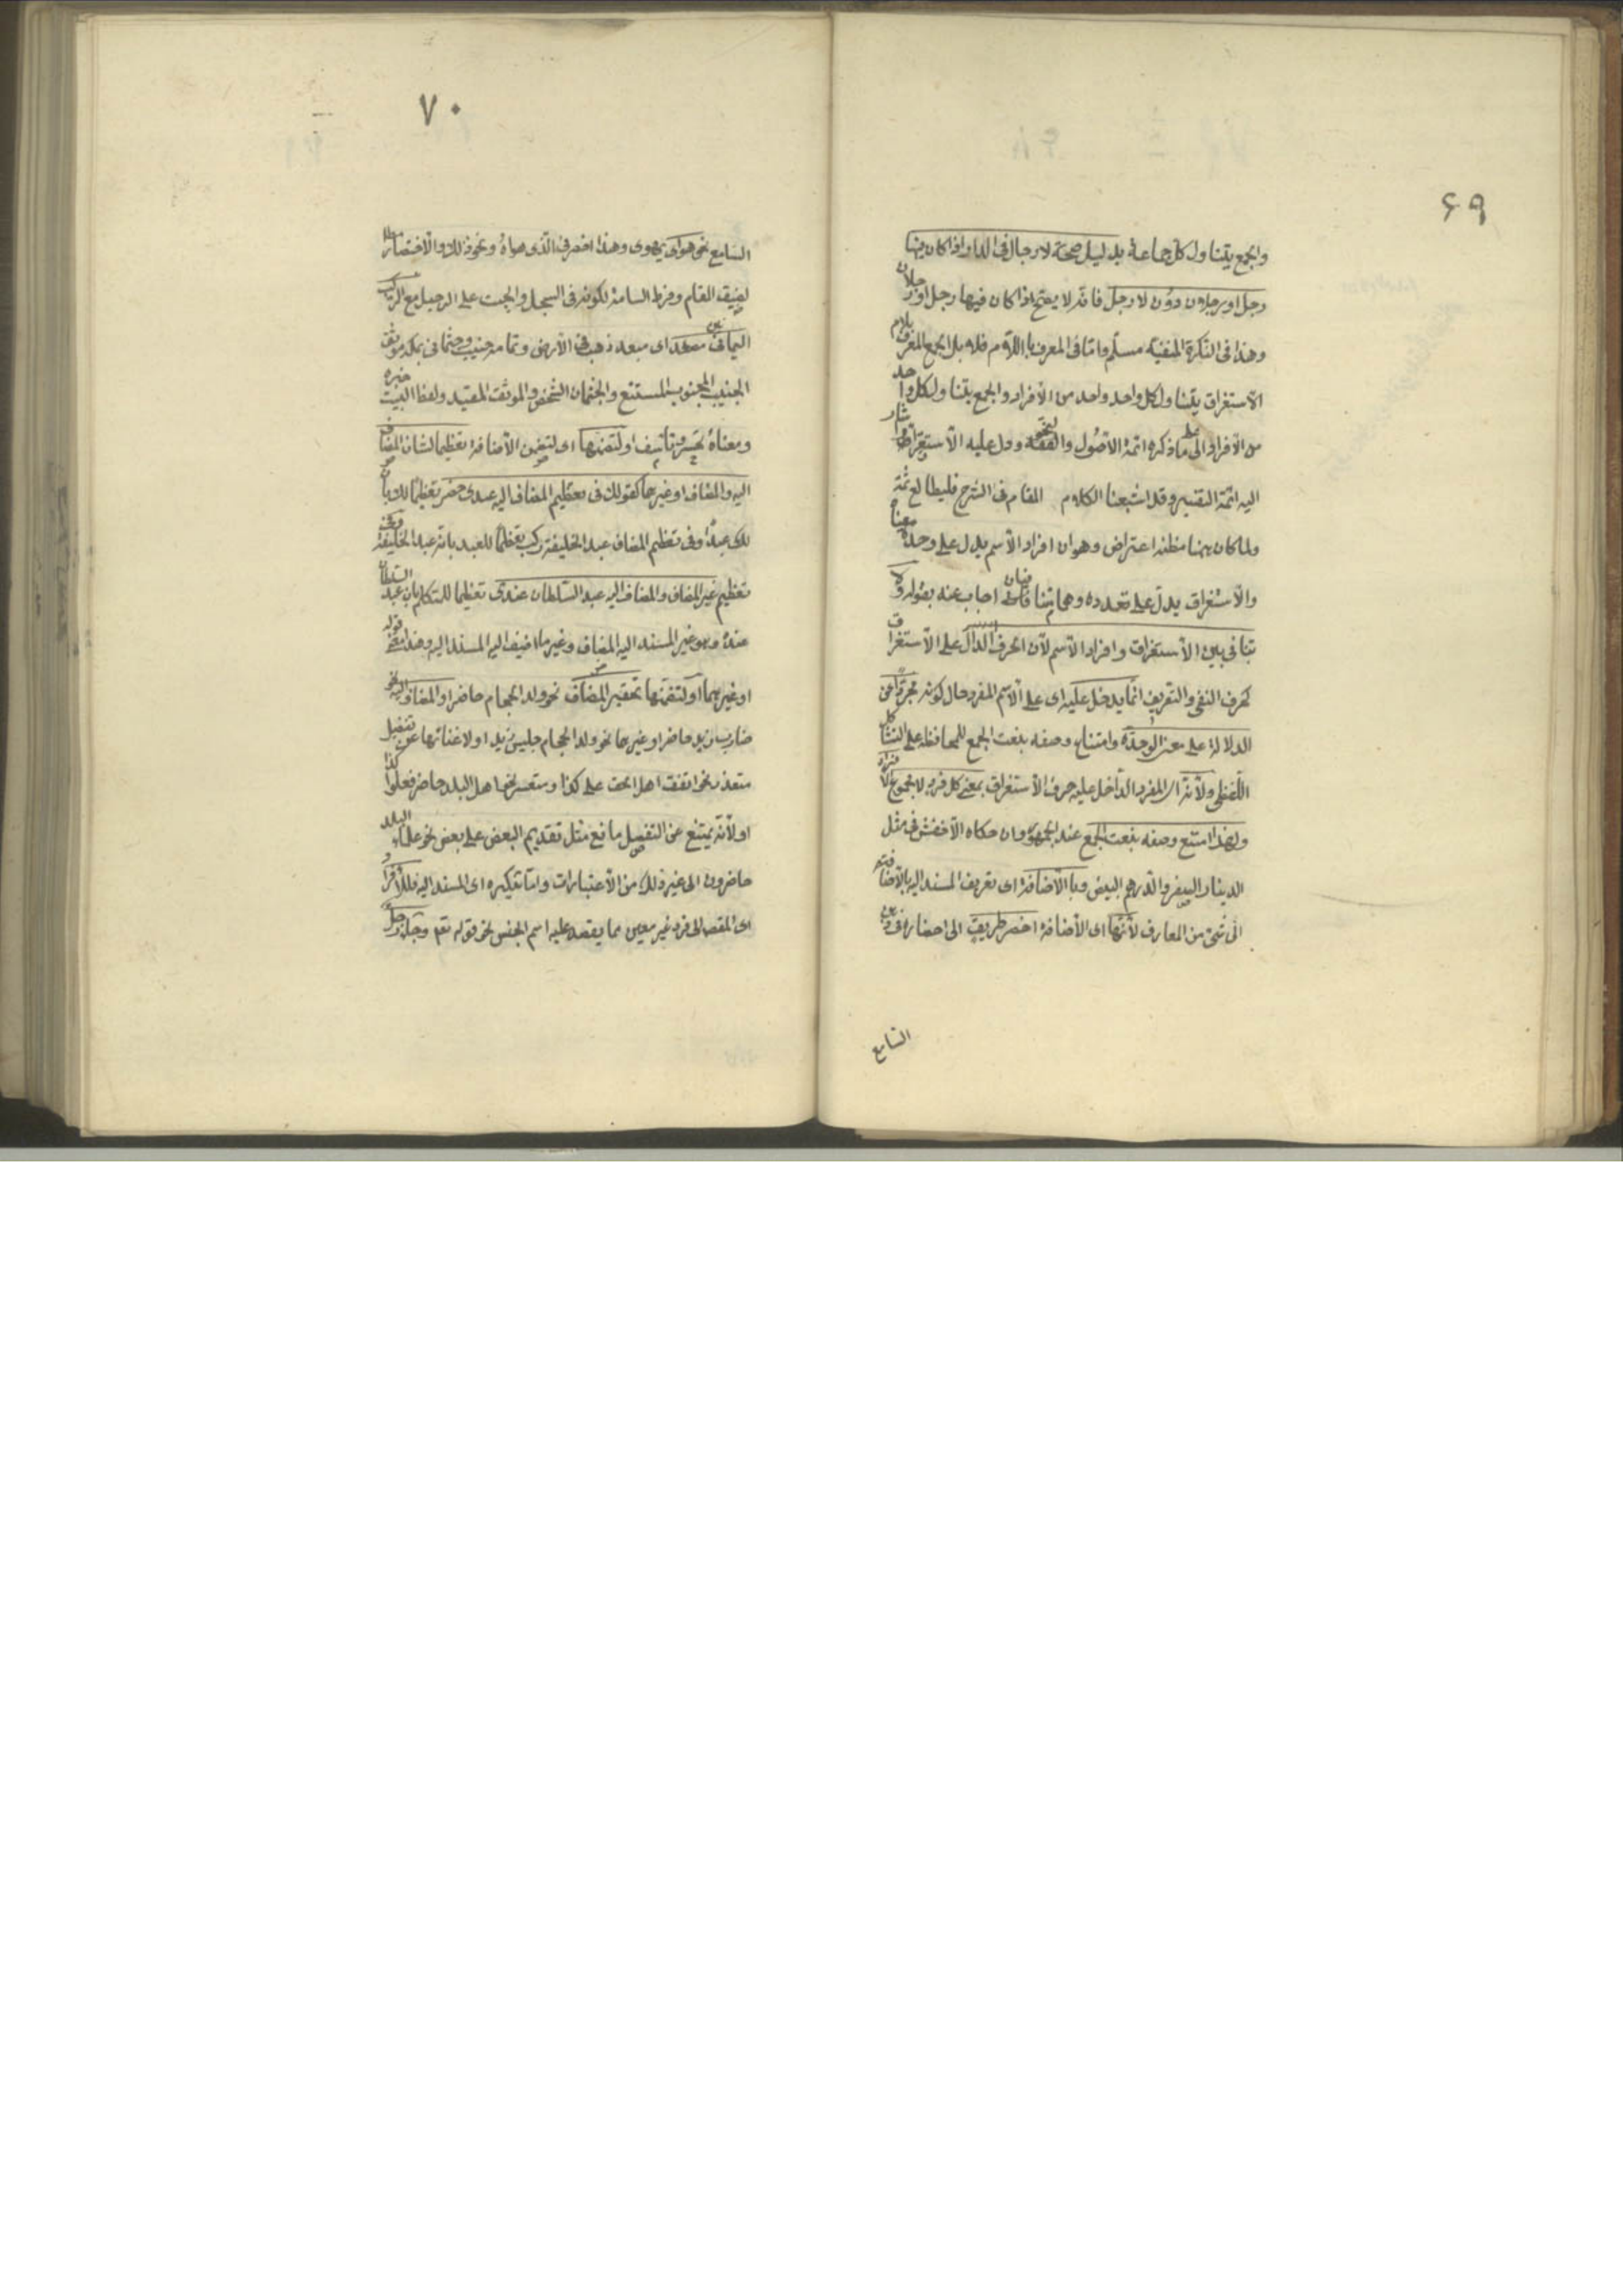 ٦٩
والجمع يتناول كل جماعة بدليل صحة لا رجال فى الدار اذا كان فيها
رجل او رجلان دون لا رجل فانه لا يصح اذا كان فيها رجل او رجلان
وهذا فى النكرة المنفية مسلم واما فى المعرف باللام فلا بل الجمع المعرف بلام
الاستغراق يتناول كل واحد واحد من الافراد والجمع يتناول كل واحد
من الافراد على ما ذكره ائمة الاصول والنحو ودل عليه الاستقراء واشار
اليه ائمة التفسير وقد اشبعنا الكلام المقام فى الشرح فليطالع ثمة
ولما كان ههنا مظنة اعتراض وهو ان افراد الاسم يدل على وحدة معناه
والاستغراق يدل على تعدده وهما يتنافيان اجاب عنه بقوله ولا
تنافى بين الاستغراق وافراد الاسم لان الحرف الدال على الاستغراق
كحرف النفى والتعريف انما يدخل عليه اى على الاسم المفرد حال كونه مجردا عن
الدلالة على معنى الوحدة وامتناع وصفه بنعت الجمع للمحافظة على التشاكل
اللفظى ولانه اى المفرد الداخل عليه حرف الاستغراق بمعنى كل فرد لا مجموع الافراد
ولهذا امتنع وصفه بنعت الجمع عند الجمهور وان حكاه الاخفش فى مثل
الدينار الصفر والدرهم البيض وبالاضافة اى تعريف المسند اليه بالاضافة
الى شئ من المعارف لانها اى الاضافة اخصر طريق الى احضاره فى ذهن
السامع
٧٠
السامع نحو هواى اى مهوى وهذا اخصر من الذى اهواه ونحو ذلك والاختصار مطلوب
لضيق المقام وفرط السآمة لكونه فى السجن والحبيب على الرحيل مع الركب
اليمانين مصعد اى مبعد ذهب فى الارض وتمامه جنيب وجثمانى بمكة موثق
الجنيب المجنوب المستتبع والجثمان الشخص والموثق المقيد ولفظ البيت خبر
ومعناه تحسر وتأسف او لتضمنها اى لتضمن الاضافة تعظيما لشان المضاف
اليه والمضاف او غيرهما كقولك فى تعظيم المضاف اليه عبدى حضر تعظيما لك بان
لك عبدا وفى تعظيم المضاف عبد الخليفة ركب تعظيما للعبد بانه عبد الخليفة وفى
تعظيم غير المضاف والمضاف اليه عبد السلطان عندى تعظيما للمتكلم بان عبد السلطان
عنده وهو غير المسند اليه المضاف وغير ما اضيف اليه المسند اليه وهذا معنى قوله
او غيرهما او لتضمنها تحقير المضاف نحو ولد الحجام حاضر او المضاف اليه نحو
ضارب زيد حاضر او غيرهما نحو ولد الحجام جليس زيد او لاغنائها عن تفصيل
متعذر نحو اتفق اهل الحق على كذا او متعسر نحو اهل البلد حاضر فعلوا كذا
او لانه يمنع عن التفصيل مانع مثل تقديم البعض على بعض نحو علماء البلد
حاضرون الى غير ذلك من الاعتبارات واما تنكيره اى المسند اليه فللافراد
اى للقصد الى فرد غير معين مما يصدق عليه اسم الجنس نحو قوله تع وجاء رجل